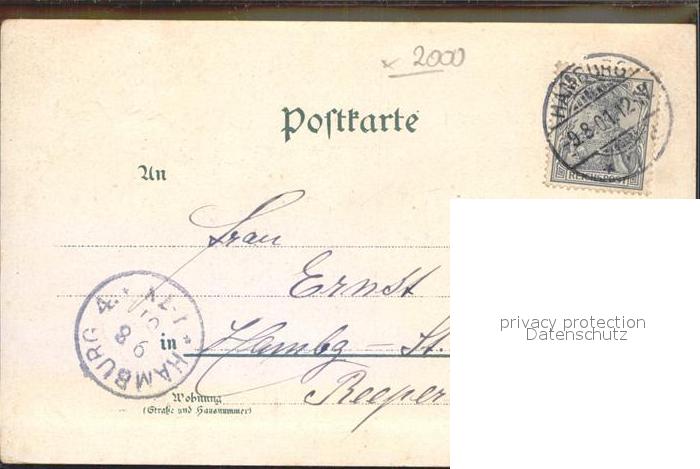 x 2000
Postkarte
HAMBURG
9.8.01.12-
REICHSPOST
An
Frau
Ernst
in Hambg - St.
Reeper
Wohnung
(Straße und Hausnummer)
HAMBURG 4.
9 8
privacy protection
Datenschutz